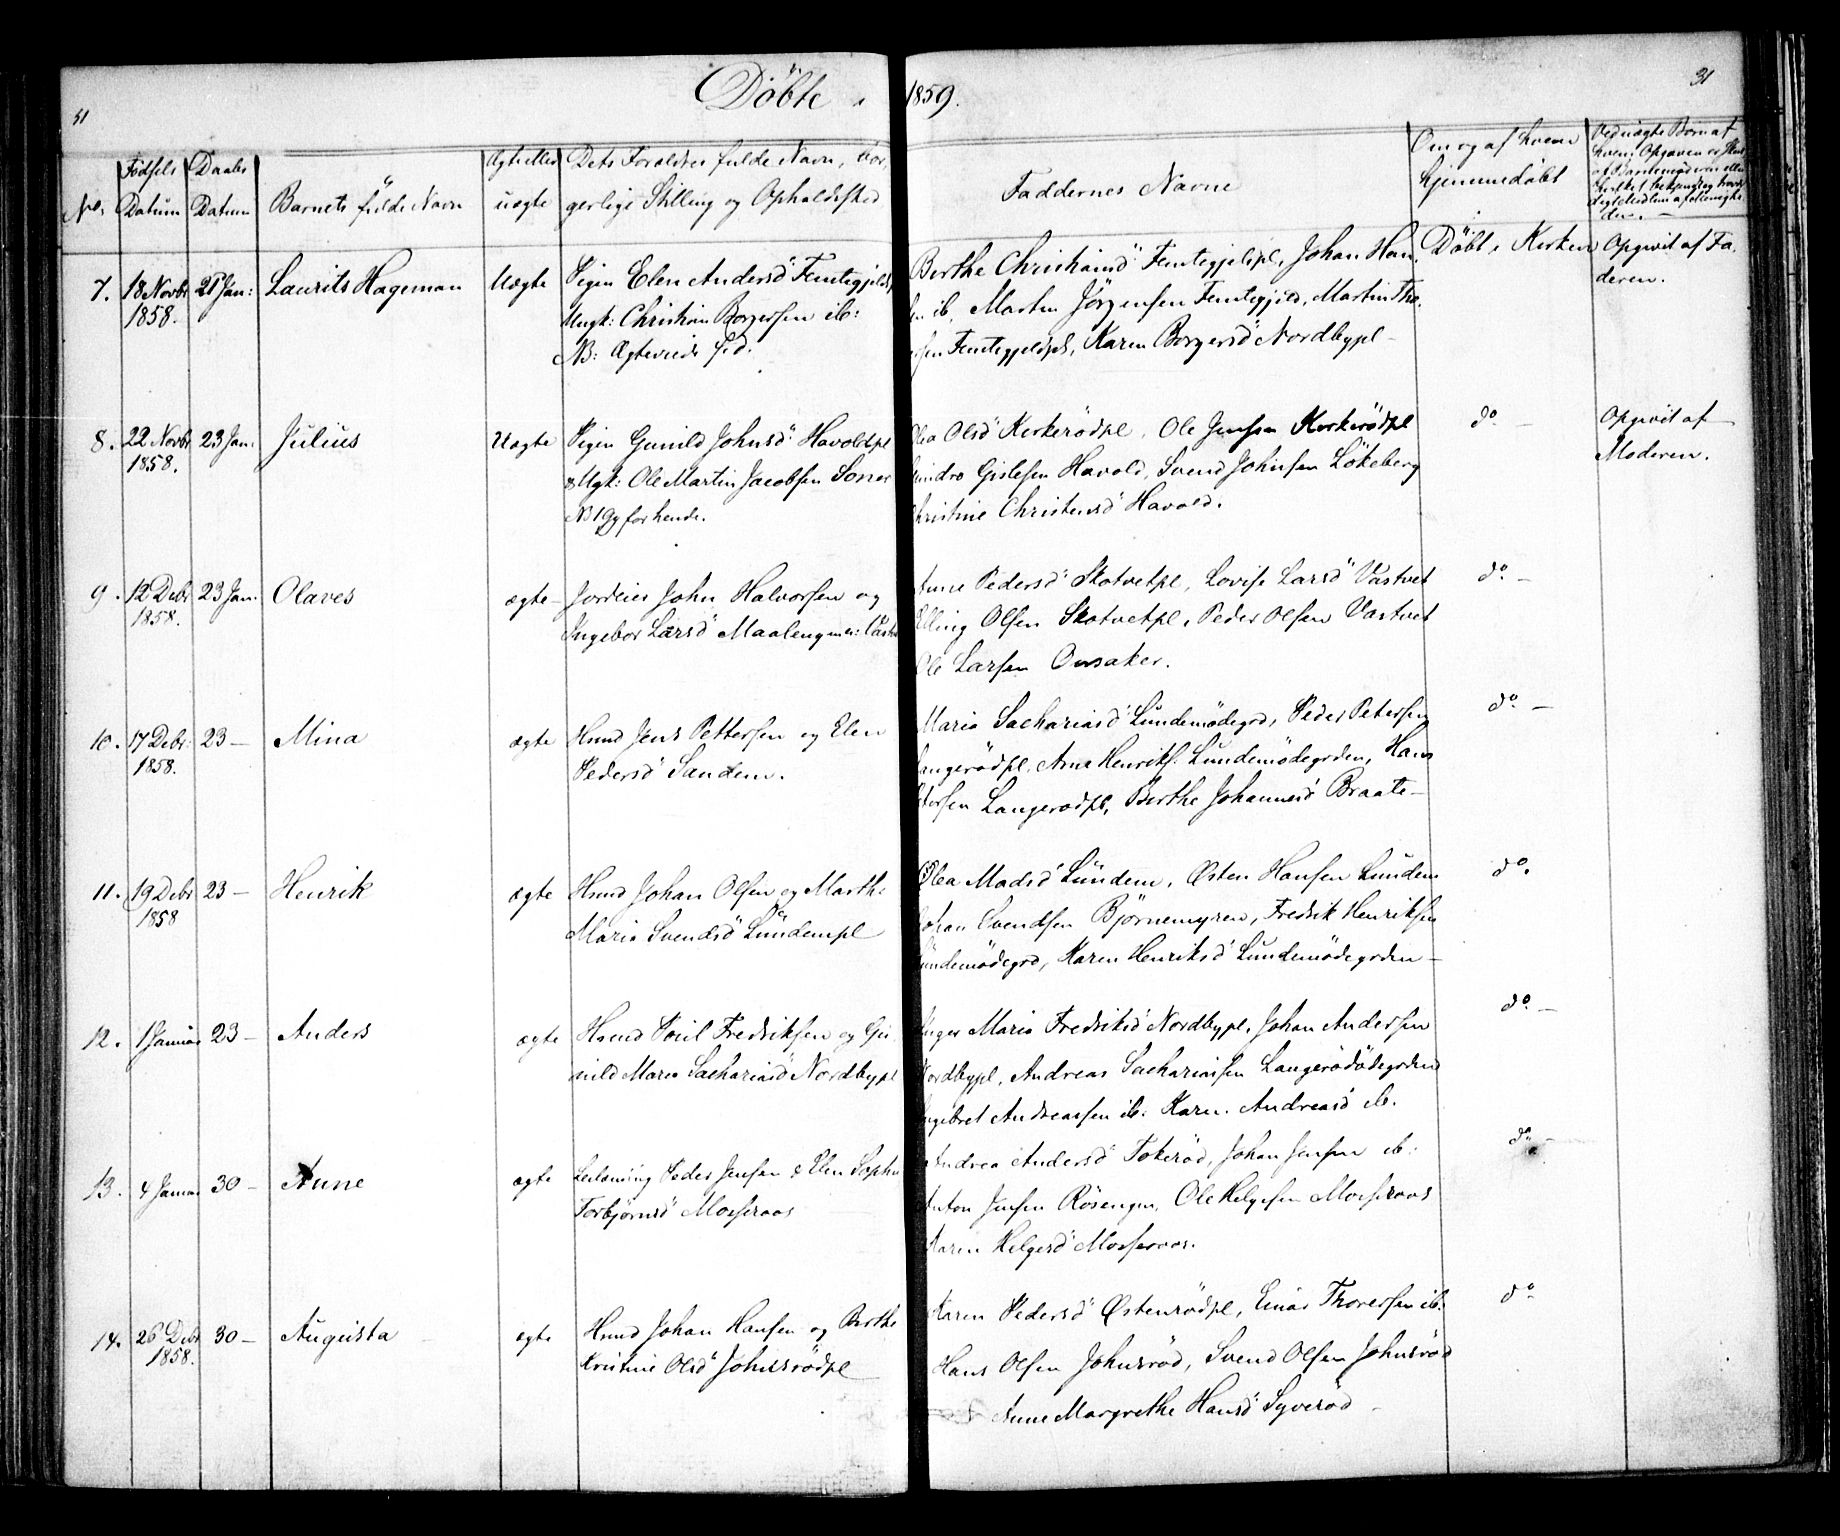 51
Döbte i 1859.
31
No.
Födsels Datum
Daabs Datum
Barnets fulde Navn
Ægte eller uægte
Dets Forældres fulde Navn, bor,
gerlige Stilling og Opholdssted
Faddernes Navne
Om og af hvem
hjemmedöbt
Ved uægte Börn af
7. 18 Novbr 1858. 21 Jan: Laurits Hageman Uægte
Pigen Elen Andersd Femtegjeldpl
Ungk: Christian Borgersen ib:
NB: Ægteviede s.d.
Berthe Christiansd Femtegjeldpl, Johan Han,
sen ib, Martin Jörgensen Femtegjeld, Martin Tho,
Femtegjeldpl, Karen Borgersd Nordbypl –
Döbt i Kirken
Opgivet af Fa,
deren.
8. 22 Novbr 1858. 23 Jan. Julius Uægte
Pigen Gunild Johnsd Havoldpl
& Ugk: Ole Martin Jacobsen Soner
NB 1 Gg for hende.
Olea Olsd Kirkerödpl, Ole Jensen Kirkerödpl
Gislesen Havold, Svend Johnsen Lökeberg
Christine Christensd Havold.
do –
Opgivet af
Moderen.
9. 12 Debr 1858. 23 Jan. Olaves ægte –
Jordeier John Halvorsen og
Ingebor Larsd Maalengen
Anne Pedersd Skotvetpl, Lovise Larsd Vastvet
Elling Olsen Skotvetpl, Peder Olsen Vastvet
Ole Larsen Onsaker.
do –
10. 17 Debr: 1858. 23 – Mina ægte
Hsmd Jens Pettersen og Elen
Pedersd Sandem.
Maria Sachariasd Lundemödegrd, Peder Petersen
Langerödpl, Arne Henriks. Lundemödegrden, Hans
Langerödpl, Berthe Johannesd Braate –
do –
11. 19 Debr 1858 23 – Henrik ægte
Hsmd Johan Olsen og Marth:
Maria Svendsd Lundempl
Olea Madsd Lundem, Østen Hansen Lundem
Johan Svendsen Björnemyren, Fredrik Henriksen
Lundemödegrd, Karen Henriksd Lundemödegrden –
do.
12. 1 Januar 23 – Anders ægte
Hsmd Poul Fredriksen og Gu
nild Maria Sachariasd Nordbypl
Inger Maria Fredriksd Nordbypl, Johan Andersen
Nordbypl, Andreas Sachariasen Langerödödegrden
Ingebret Andreassen ib: Karn. Andreasd ib.
do –
13. 4 Januar 30 – Anne ægte
Leilænding Peder Jensen & Elen Sophie
Torbjörnsd Mosseraas
Andrea Andersd Tokeröd, Johan Jensen ib:
Anton Jensen Rösengen, Ole Helgesen Mosseraas
Karen Helgesd Mosseraas.
do –
14. 26 Debr 1858. 30 – Augusta ægte
Hsmd Johan Hansen og Berthe
Kristine Olsd Johnsrödpl
Karen Pedersd Østenrödpl, Einar Thoresen ib:
Hans Olsen Johnsröd, Svend Olsen Johnsröd
Anne Margrethe Hansd Syveröd –
do